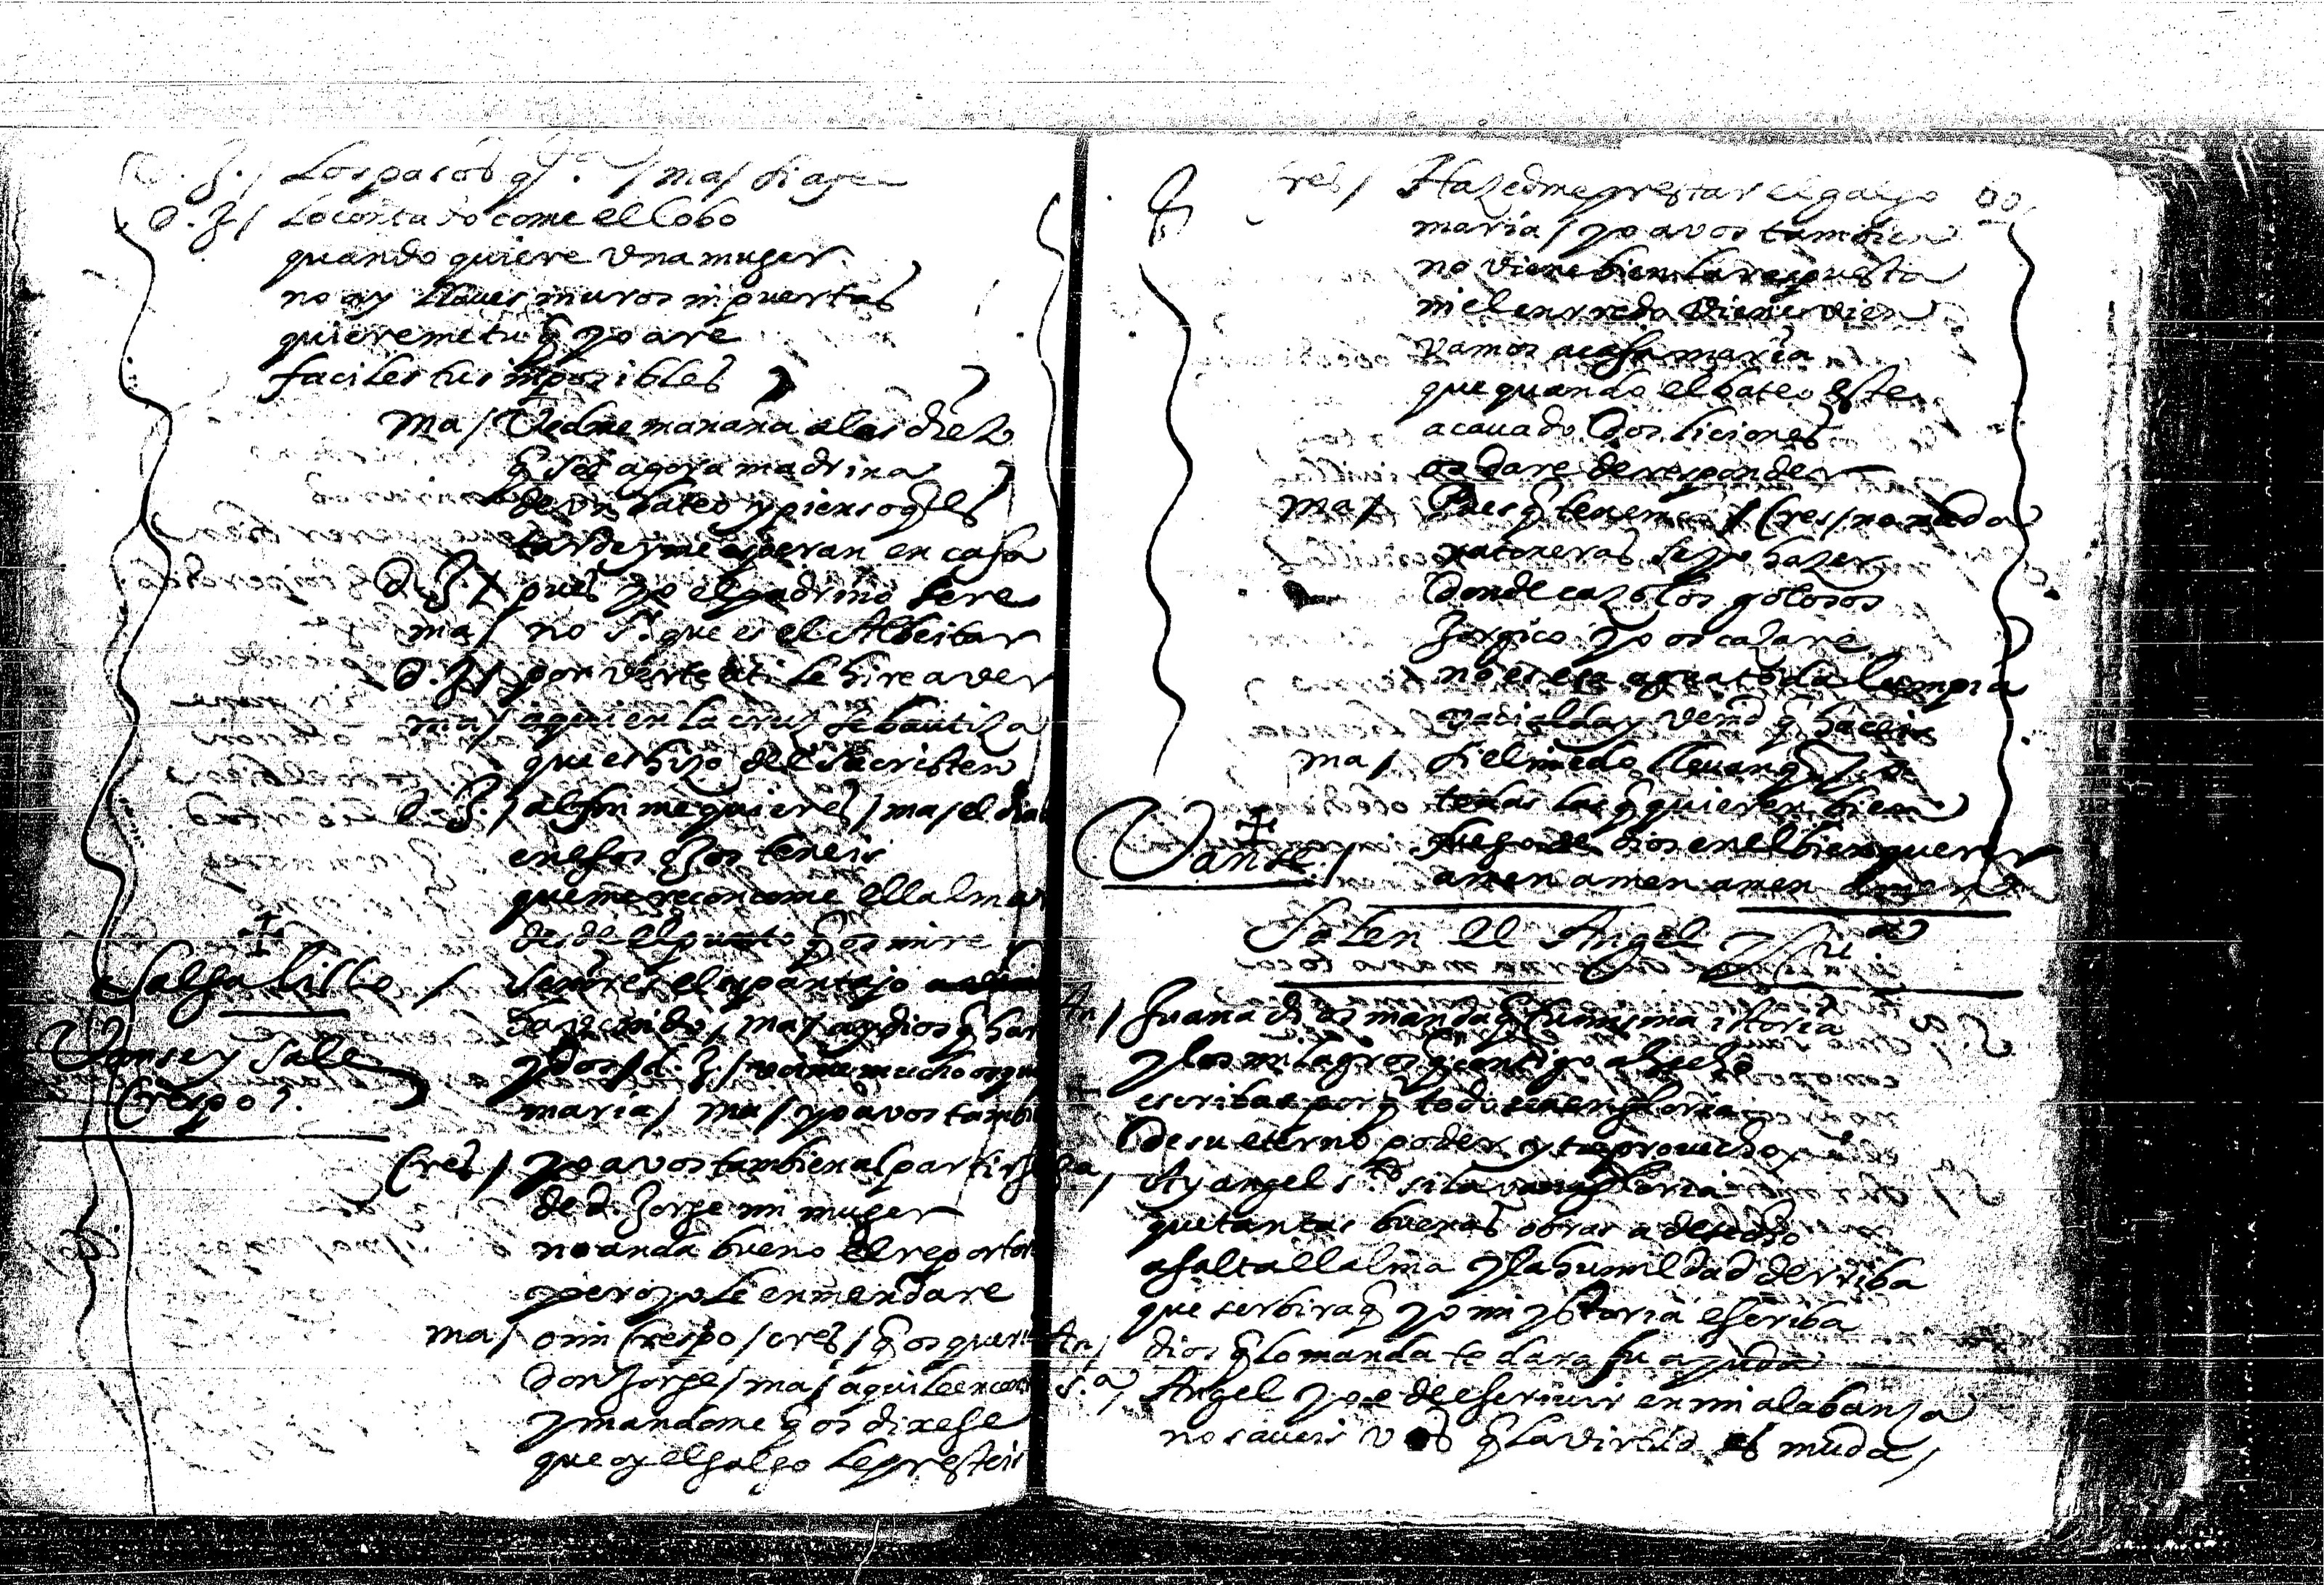 D. J. / Los pasos q / ma / si a fe
D. J. / Lo contado come el lobo
quando quiere vna muger
no ay llaues muros ni puertas
quiereme tu q yo are
faciles tus imposibles
ma / Vedme mañana a las diez
q soi agora madrina
de vn bateo y pienso q es
tarde y me esperan en casa
D. J. / pues yo el padrino sere
ma / no S.r que es el Albeitar
D. J. / por verte a ti le hire a ver
ma / aqui en la cruz se bautiza
que es hijo del Sacristen
D. J. / al fin me quieres / ma / el dia
en esos ojos teneis
que me reconcome ell alma
desde el punto q os mire
Salga lillo / Señores el espantajo
ha venido / ma / ay dios q har
Vanse y sale Crespo
y dos / d. J. / voime mucho os qui
maria / ma / yo a vos tambi
Cres / yo a vos tambien al partirse
de d. Jorge mi muger
no anda bueno el reportor
pero yo le enmendare
ma / o mi Crespo / cres / q os queri
don Jorge / ma / aqui le encon
y mandome q os dixese
que oy el galgo le presteis
Cres / Hazedme prestar el galgo
maria / yo a vos tambien
no viene bien la respuesta
ni el enrredo viene vien
vamos a casa maria
que quando el bateo este
acauado dos liciones
os dare de responder
ma / Pues q tenemos / Cres / no nada
ratoneras se yo hazer
donde cazo los golosos
Jorgico yo os cazare
no es esa agua toda limpia
vacialda y venid q haceis
ma / si el miedo lleuan q yo
todas las q quieren bien
fuego de dios en el bien querer
amen amen amen amen
Vanse /
Salen el Angel y S.ta
An / Juana dios manda q tu misma istoria
y los milagros q contigo a hecho
escribas porq todo es en gloria
de su eterno poder y tu prouecho
S.a / Ay angel s.to si la vanagloria
que tantas buenas obras a desecho
asalta ell alma y la humildad derriba
que serbira q yo mi ystoria escriba
An / dios q lo manda te dara su ayuda
S.a / Angel yo e de escriuir en mi alabanza
no saueis vos q la virtud es muda /